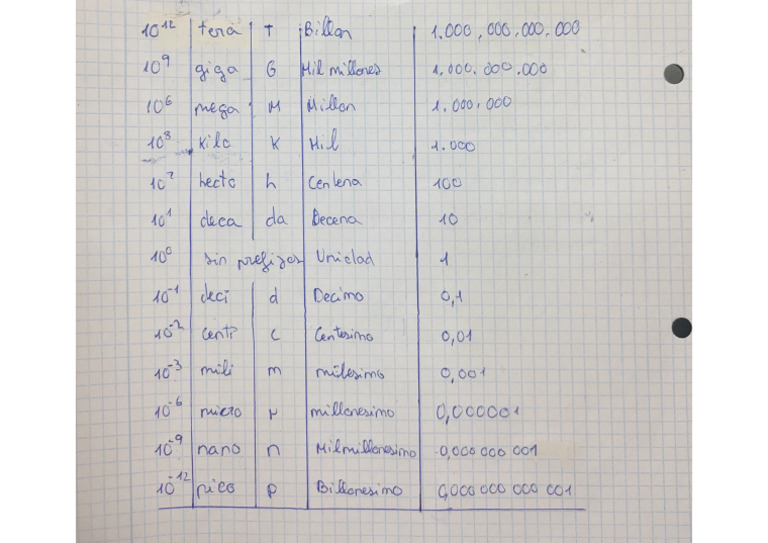 10¹² tera T Billon 1.000.000.000.000
10⁹ giga G Mil millones 1.000.000.000
10⁶ mega M Millon 1.000.000
10³ Kilo K Mil 1.000
10² hecto h Centena 100
10¹ deca da Decena 10
10⁰ sin prefijos Unidad 1
10⁻¹ deci d Decimo 0,1
10⁻² centi c Centesimo 0,01
10⁻³ mili m milesimo 0,001
10⁻⁶ micro μ millonesimo 0,000001
10⁻⁹ nano n Milmillonesimo 0,000 000 001
10⁻¹² pico p Billonesimo 0,000 000 000 001